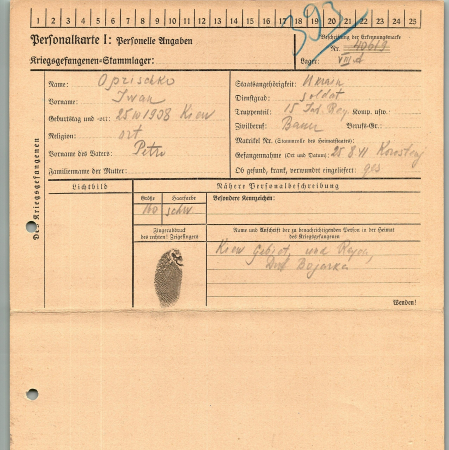 1 2 3 4 5 6 7 8 9 10 11 12 13 14 15 16 17 18 19 20 21 22 23 24 25
393
Personalkarte I: Personelle Angaben
Kriegsgefangenen-Stammlager:
Beschriftung der Erkennungsmarke
Nr.
Lager: VIII A
Des Kriegsgefangenen
Name: Opzischko
Vorname: Iwan
Geburtstag und -ort: 25 10 1908 Kiew
Religion: ort
Vorname des Vaters: Petro
Familienname der Mutter:
Staatsangehörigkeit: Ukrain
Dienstgrad: Soldat
Truppenteil: 15 Inf. Reg Komp. usw.:
Zivilberuf: Bauer Berufs-Gr.:
Matrikel Nr. (Stammrolle des Heimatstaates):
Gefangennahme (Ort und Datum): 25 8 41
Ob gesund, krank, verwundet eingeliefert: ges
Lichtbild
Nähere Personalbeschreibung
Größe
Haarfarbe
Besondere Kennzeichen:
160
schw
Fingerabdruck
des rechten! Zeigefingers
Name und Anschrift der zu benachrichtigenden Person in der Heimat
des Kriegsgefangenen
Kiew Gebiet, und Rayon,
Dorf Bojarka
Wenden!